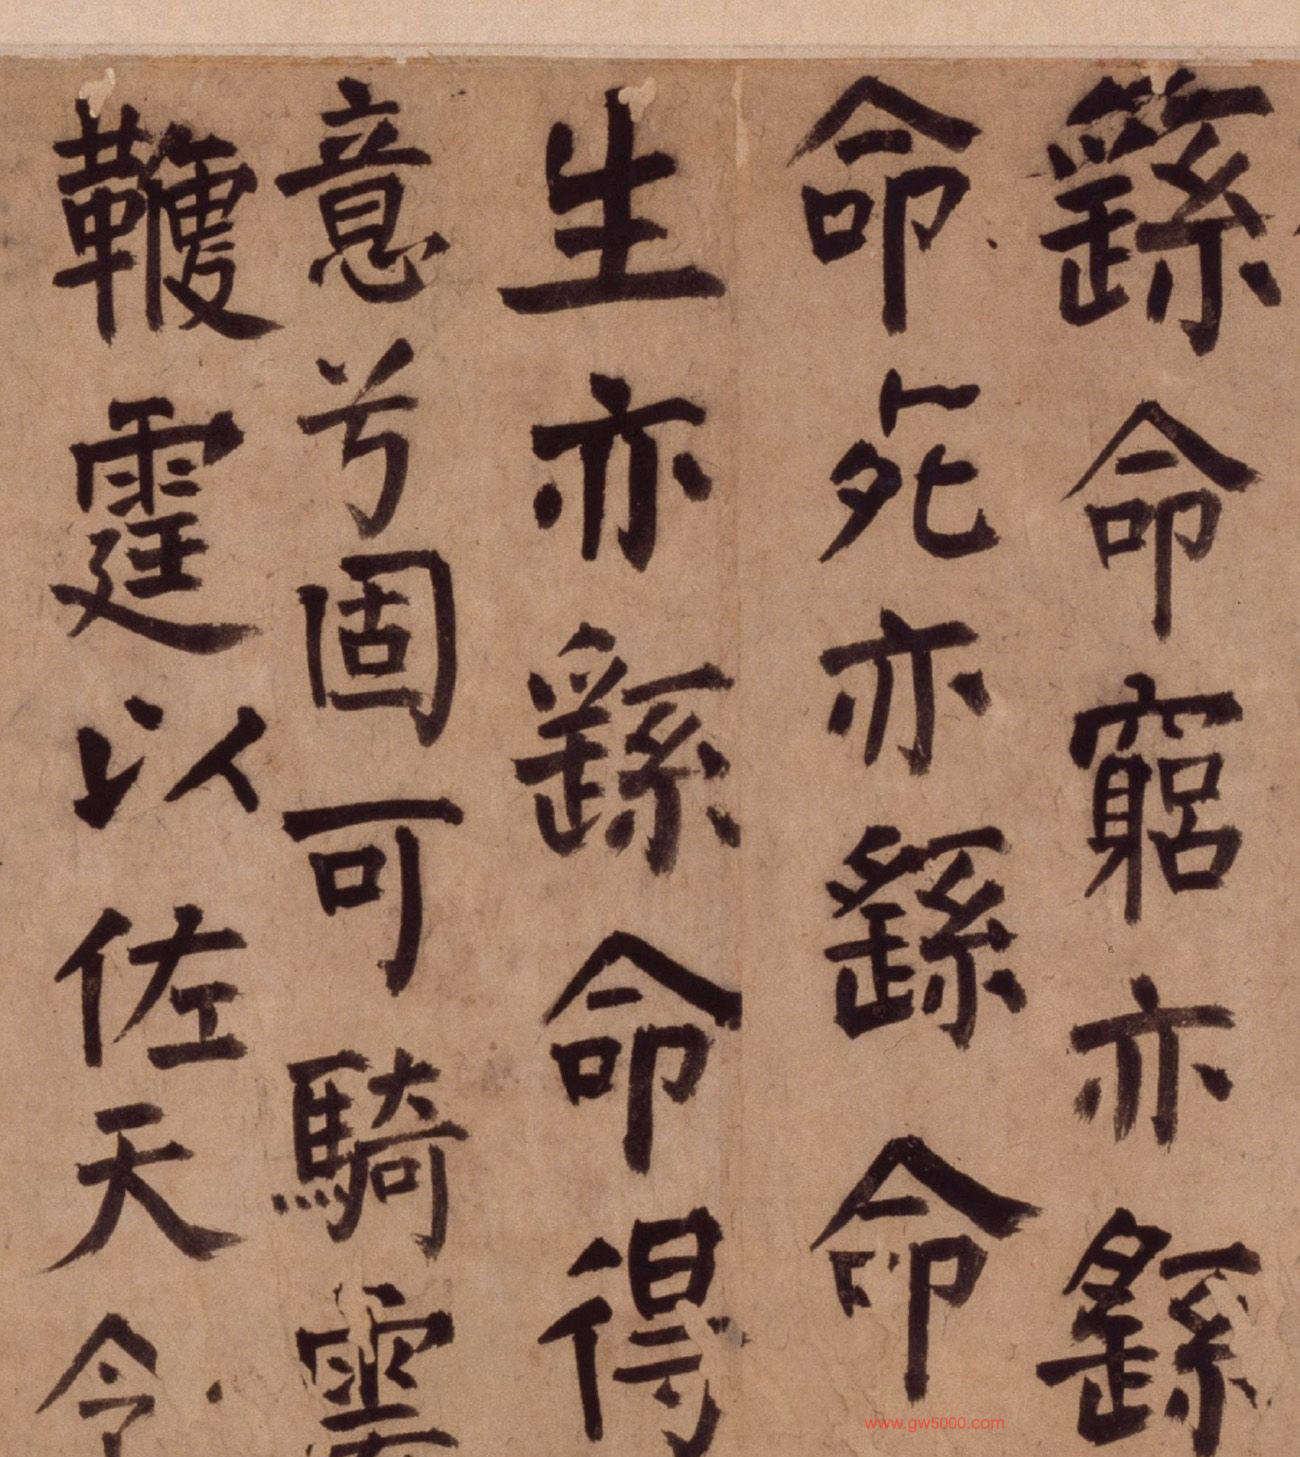 繇命窮亦繇
命死亦繇命
生亦繇命得
意兮固可騎
鞭霆以佐天令
www.gw5000.com